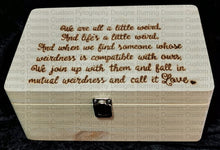 We are all a little weird.
And life's a little weird.
And when we find someone whose
weirdness is compatible with ours,
We join up with them and fall in
mutual weirdness and call it Love.